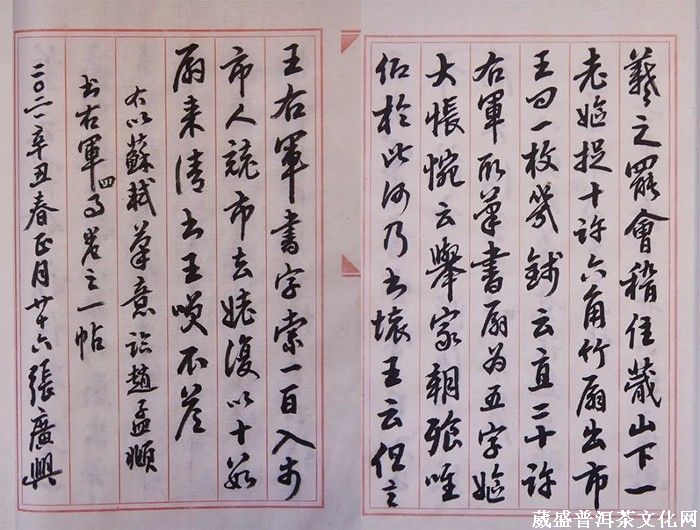 羲之罷會稽住蕺山下一
老嫗捉十許六角竹扇出市
王問一枚幾錢云直二十許
右軍取筆書扇為五字嫗
大悵惋云舉家朝飡唯
仰於此何乃书壞王云但言
王右軍書字索一百入市
市人競市去姥復以十數
扇来請书王笑不答
右以蘇軾筆意临趙孟頫
书右軍四事卷之一帖
二〇二一辛丑春正月廿六張廣興
葳盛普洱茶文化网